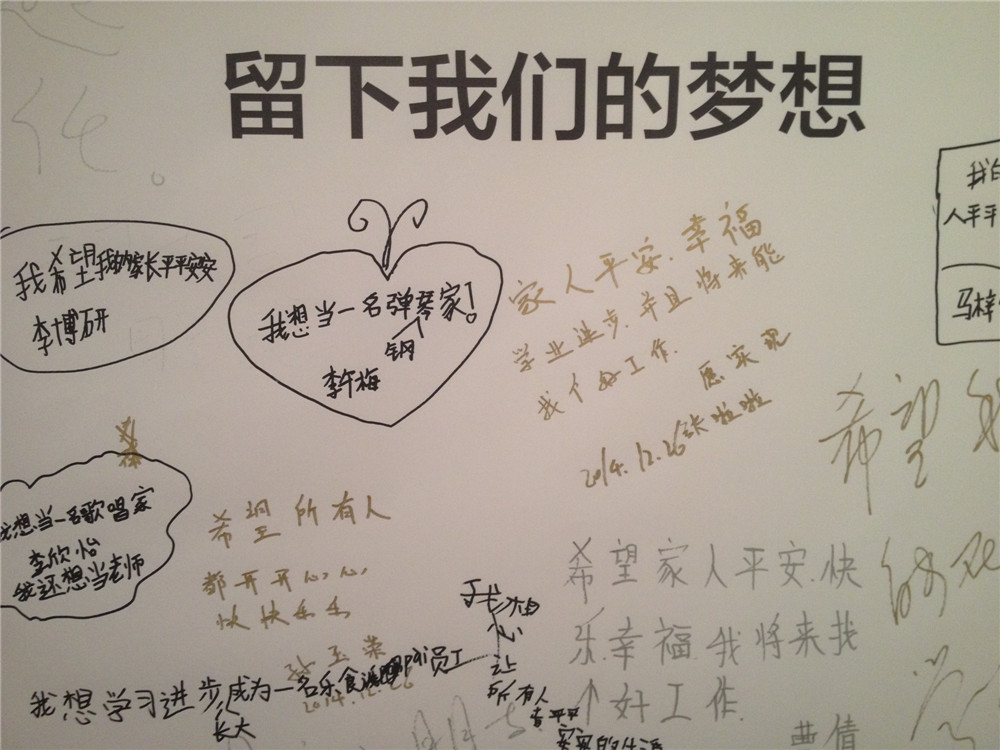 留下我们的梦想
我希望我的家长平平安安
李博研
我想当一名弹琴家!
钢
李午梅
家人平安.幸福
学业进步.并且将来能
找个好工作.
愿实现
2014.12.26 张啦啦
我的
人平平
马梓
希望我
我想当一名歌唱家
李欣怡
我还想当老师
希望所有人
都开开心心,
快快乐乐
玉荣
2014.12.26
希望家人平安.快
乐.幸福.我将来找
个好工作.
曹倩
我想学习进步成为一名乐食派 员工
长大
我想
心
让
所有人
安安的生活